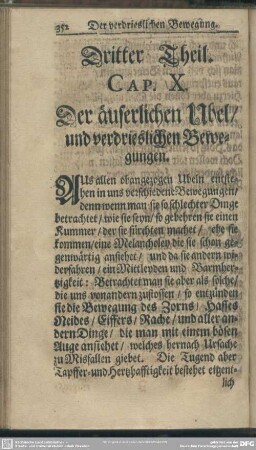 352 Der verdrieslichen Bewegung.
Dritter Theil.
CAP. X.
Der äuserlichen Ubel/
und verdrieslichen Bewe-
gungen.
AUs allen obangezogen Ubeln entste-
hen in uns verschiedene Bewegungen/
denn wenn man sie so schlechter Dinge
betrachtet/ wie sie seyn/ so gebehren sie einen
Kummer/ der sie fürchten machet/ ehe sie
kommen/ eine Melancholey die sie schon ge-
genwärtig ansiehet/ und da sie andern wi-
derfahren/ ein Mittleyden und Barmher-
tzigkeit: Betrachtet man sie aber als solche/
die uns von andern zustossen/ so entzünden
sie die Bewegung des Zorns/ Hasses
Neides/ Eiffers/ Rache/ und aller an-
dern Dinge/ die man mit einem bösen
Auge ansiehet/ welches hernach Ursache
zu Misfallen giebet. Die Tugend aber
Tapffer- und Hertzhafftigkeit bestehet eigent-
lich